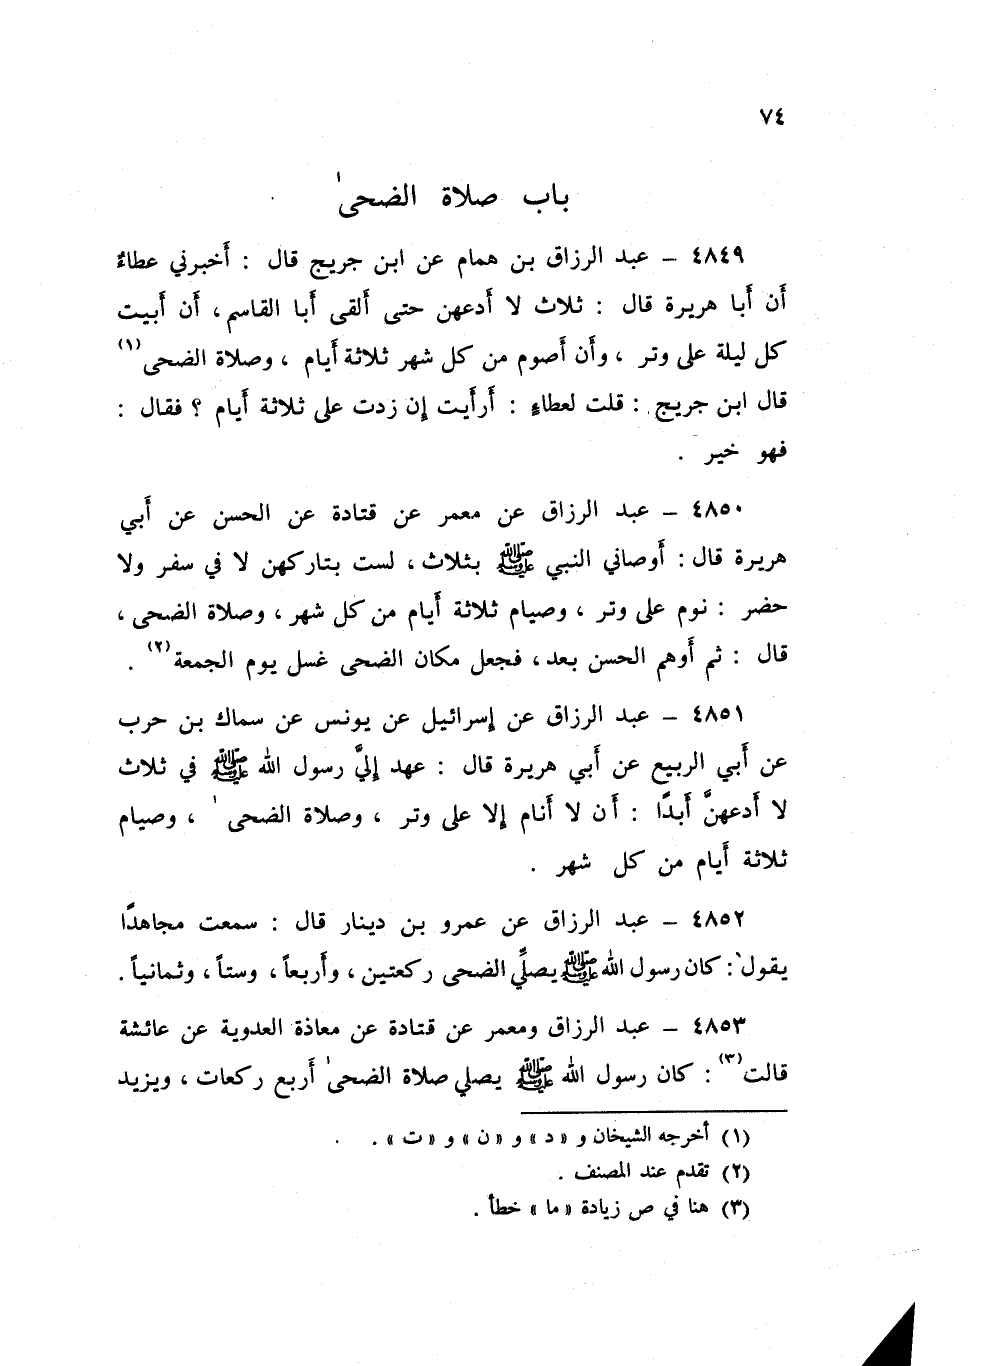 ٧٤
باب صلاة الضحىٰ
٤٨٤٩ – عبد الرزاق بن همام عن ابن جريج قال : أخبرني عطاءٌ
أن أبا هريرة قال : ثلاث لا أدعهن حتى ألقى أبا القاسم ، أن أبيت
كل ليلة على وتر ، وأن أصوم من كل شهر ثلاثة أيام ، وصلاة الضحى(١)
قال ابن جريج : قلت لعطاءٍ : أرأيت إن زدت على ثلاثة أيام ؟ فقال :
فهو خير .
٤٨٥٠ – عبد الرزاق عن معمر عن قتادة عن الحسن عن أبي
هريرة قال : أوصاني النبي ﷺ بثلاث ، لست بتاركهن لا في سفر ولا
حضر : نوم على وتر ، وصيام ثلاثة أيام من كل شهر ، وصلاة الضحى ،
قال : ثم أوهم الحسن بعد ، فجعل مكان الضحى غسل يوم الجمعة(٢) .
٤٨٥١ – عبد الرزاق عن إسرائيل عن يونس عن سماك بن حرب
عن أبي الربيع عن أبي هريرة قال : عهد إليَّ رسول الله ﷺ في ثلاث
لا أدعهنَّ أبدًا : أن لا أنام إلا على وتر ، وصلاة الضحىٰ ، وصيام
ثلاثة أيام من كل شهر .
٤٨٥٢ – عبد الرزاق عن عمرو بن دينار قال : سمعت مجاهدًا
يقول : كان رسول الله ﷺ يصلِّي الضحى ركعتين ، وأربعاً ، وستاً ، وثمانياً .
٤٨٥٣ – عبد الرزاق ومعمر عن قتادة عن معاذة العدوية عن عائشة
قالت(٣) : كان رسول الله ﷺ يصلي صلاة الضحىٰ أربع ركعات ، ويزيد
(١) أخرجه الشيخان و «د» و «ن» و «ت» .
(٢) تقدم عند المصنف .
(٣) هنا في ص زيادة «ما» خطأ .